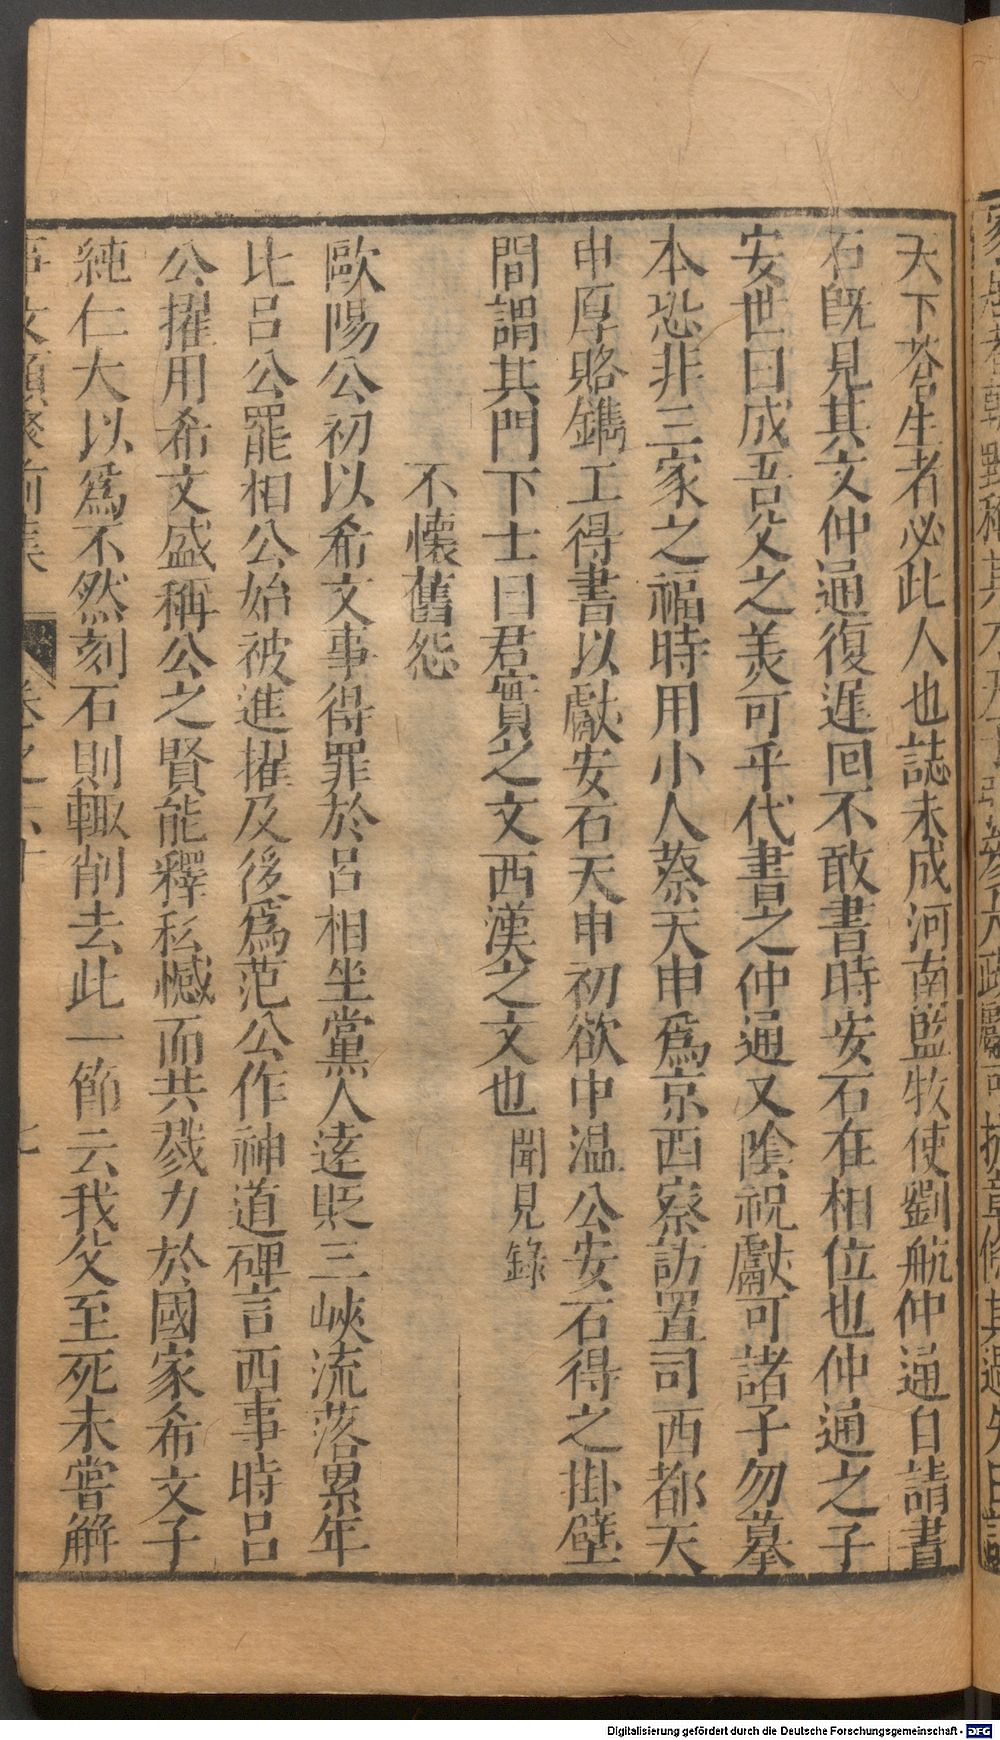 天下蒼生者必此人也誌未成河南監牧使劉航仲通自請書
石既見其文仲通復遲回不敢書時安石在相位也仲通之子
安世曰成吾父之美可乎代書之仲通又陰祝獻可諸子勿摹
本恐非三家之福時用小人蔡天申爲京西察訪置司西都天
申厚賂鐫工得書以獻安石天申初欲中温公安石得之掛壁
間謂其門下士曰君實之文西漢之文也 聞見錄
不懷舊怨
歐陽公初以希文事得罪於呂相坐黨人逺貶三峽流落累年
比呂公罷相公始被進擢及後爲范公作神道碑言西事時呂
公擢用希文盛稱公之賢能釋私憾而共戮力於國家希文子
純仁大以爲不然刻石則輙削去此一節云我父至死未嘗解
事文類聚前集 卷之六十
Digitalisierung gefördert durch die Deutsche Forschungsgemeinschaft - DFG